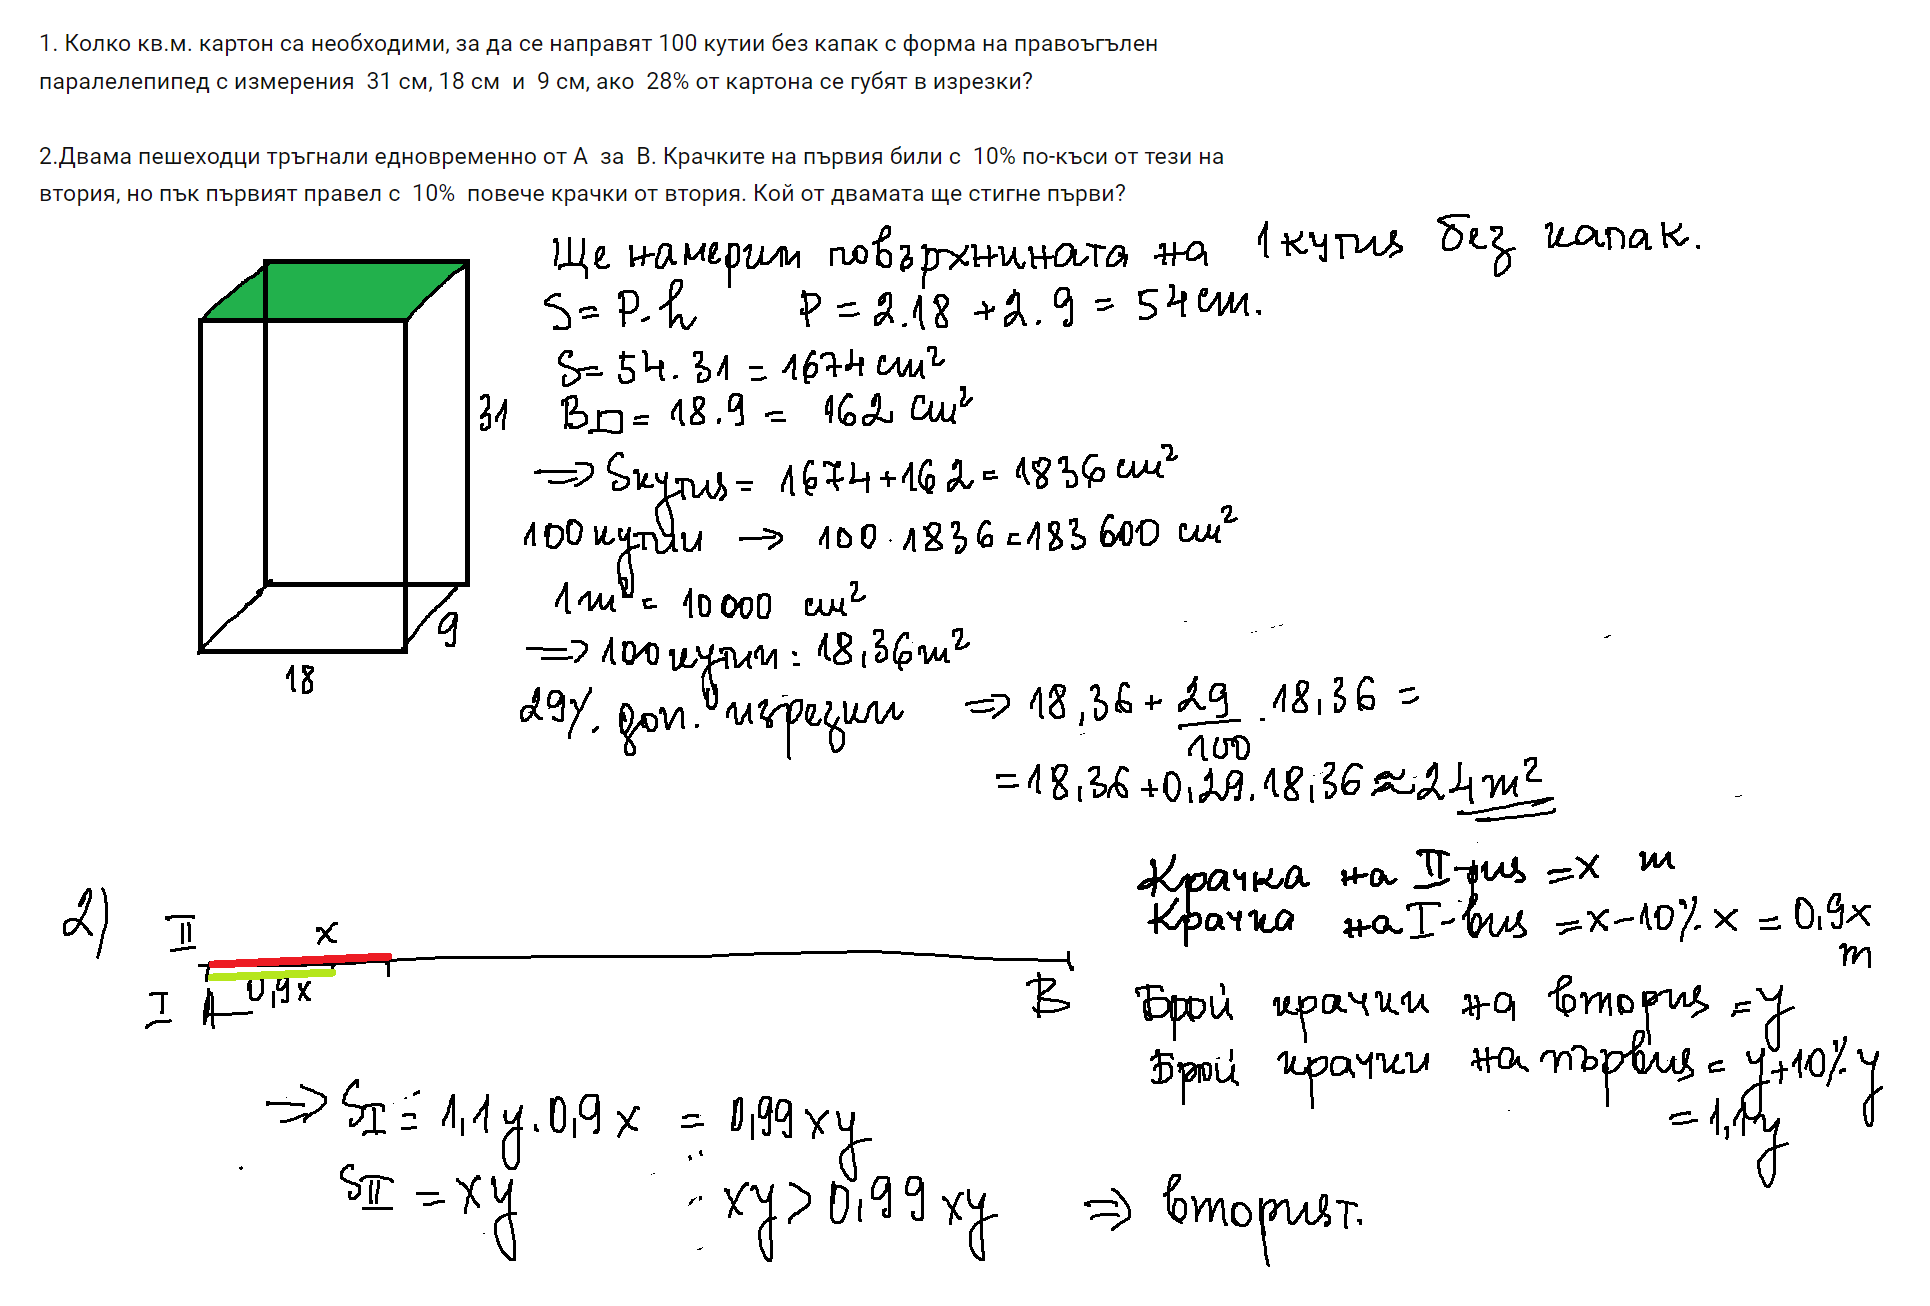 1. Колко кв.м. картон са необходими, за да се направят 100 кутии без капак с форма на правоъгълен
паралелепипед с измерения 31 см, 18 см и 9 см, ако 28% от картона се губят в изрезки?
2.Двама пешеходци тръгнали едновременно от А за В. Крачките на първия били с 10% по-къси от тези на
втория, но пък първият правел с 10% повече крачки от втория. Кой от двамата ще стигне първи?
Ще намерим повърхнината на 1 кутия без капак.
S = P.h P = 2.18 + 2.9 = 54 cm.
S = 54.31 = 1674 cm²
31 B▭ = 18.9 = 162 cm²
=> Sкутия = 1674+162 = 1836 cm²
100 кутии → 100.1836 = 183 600 cm²
1 m² = 10 000 cm²
9
=> 100 кутии: 18,36 m²
18
29% доп. изрезки => 18,36 + 29/100 . 18,36 =
= 18,36 + 0,29.18,36 ≈ 24 m²
2)
Крачка на II-рия = x m
Крачка на I-вия = x - 10% x = 0,9x m
II x
I A 0,9x B
Брой крачки на втория = y
Брой крачки на първия = y + 10% y
= 1,1y
=> SI = 1,1y.0,9x = 0,99xy
SII = xy xy > 0,99 xy => вторият.